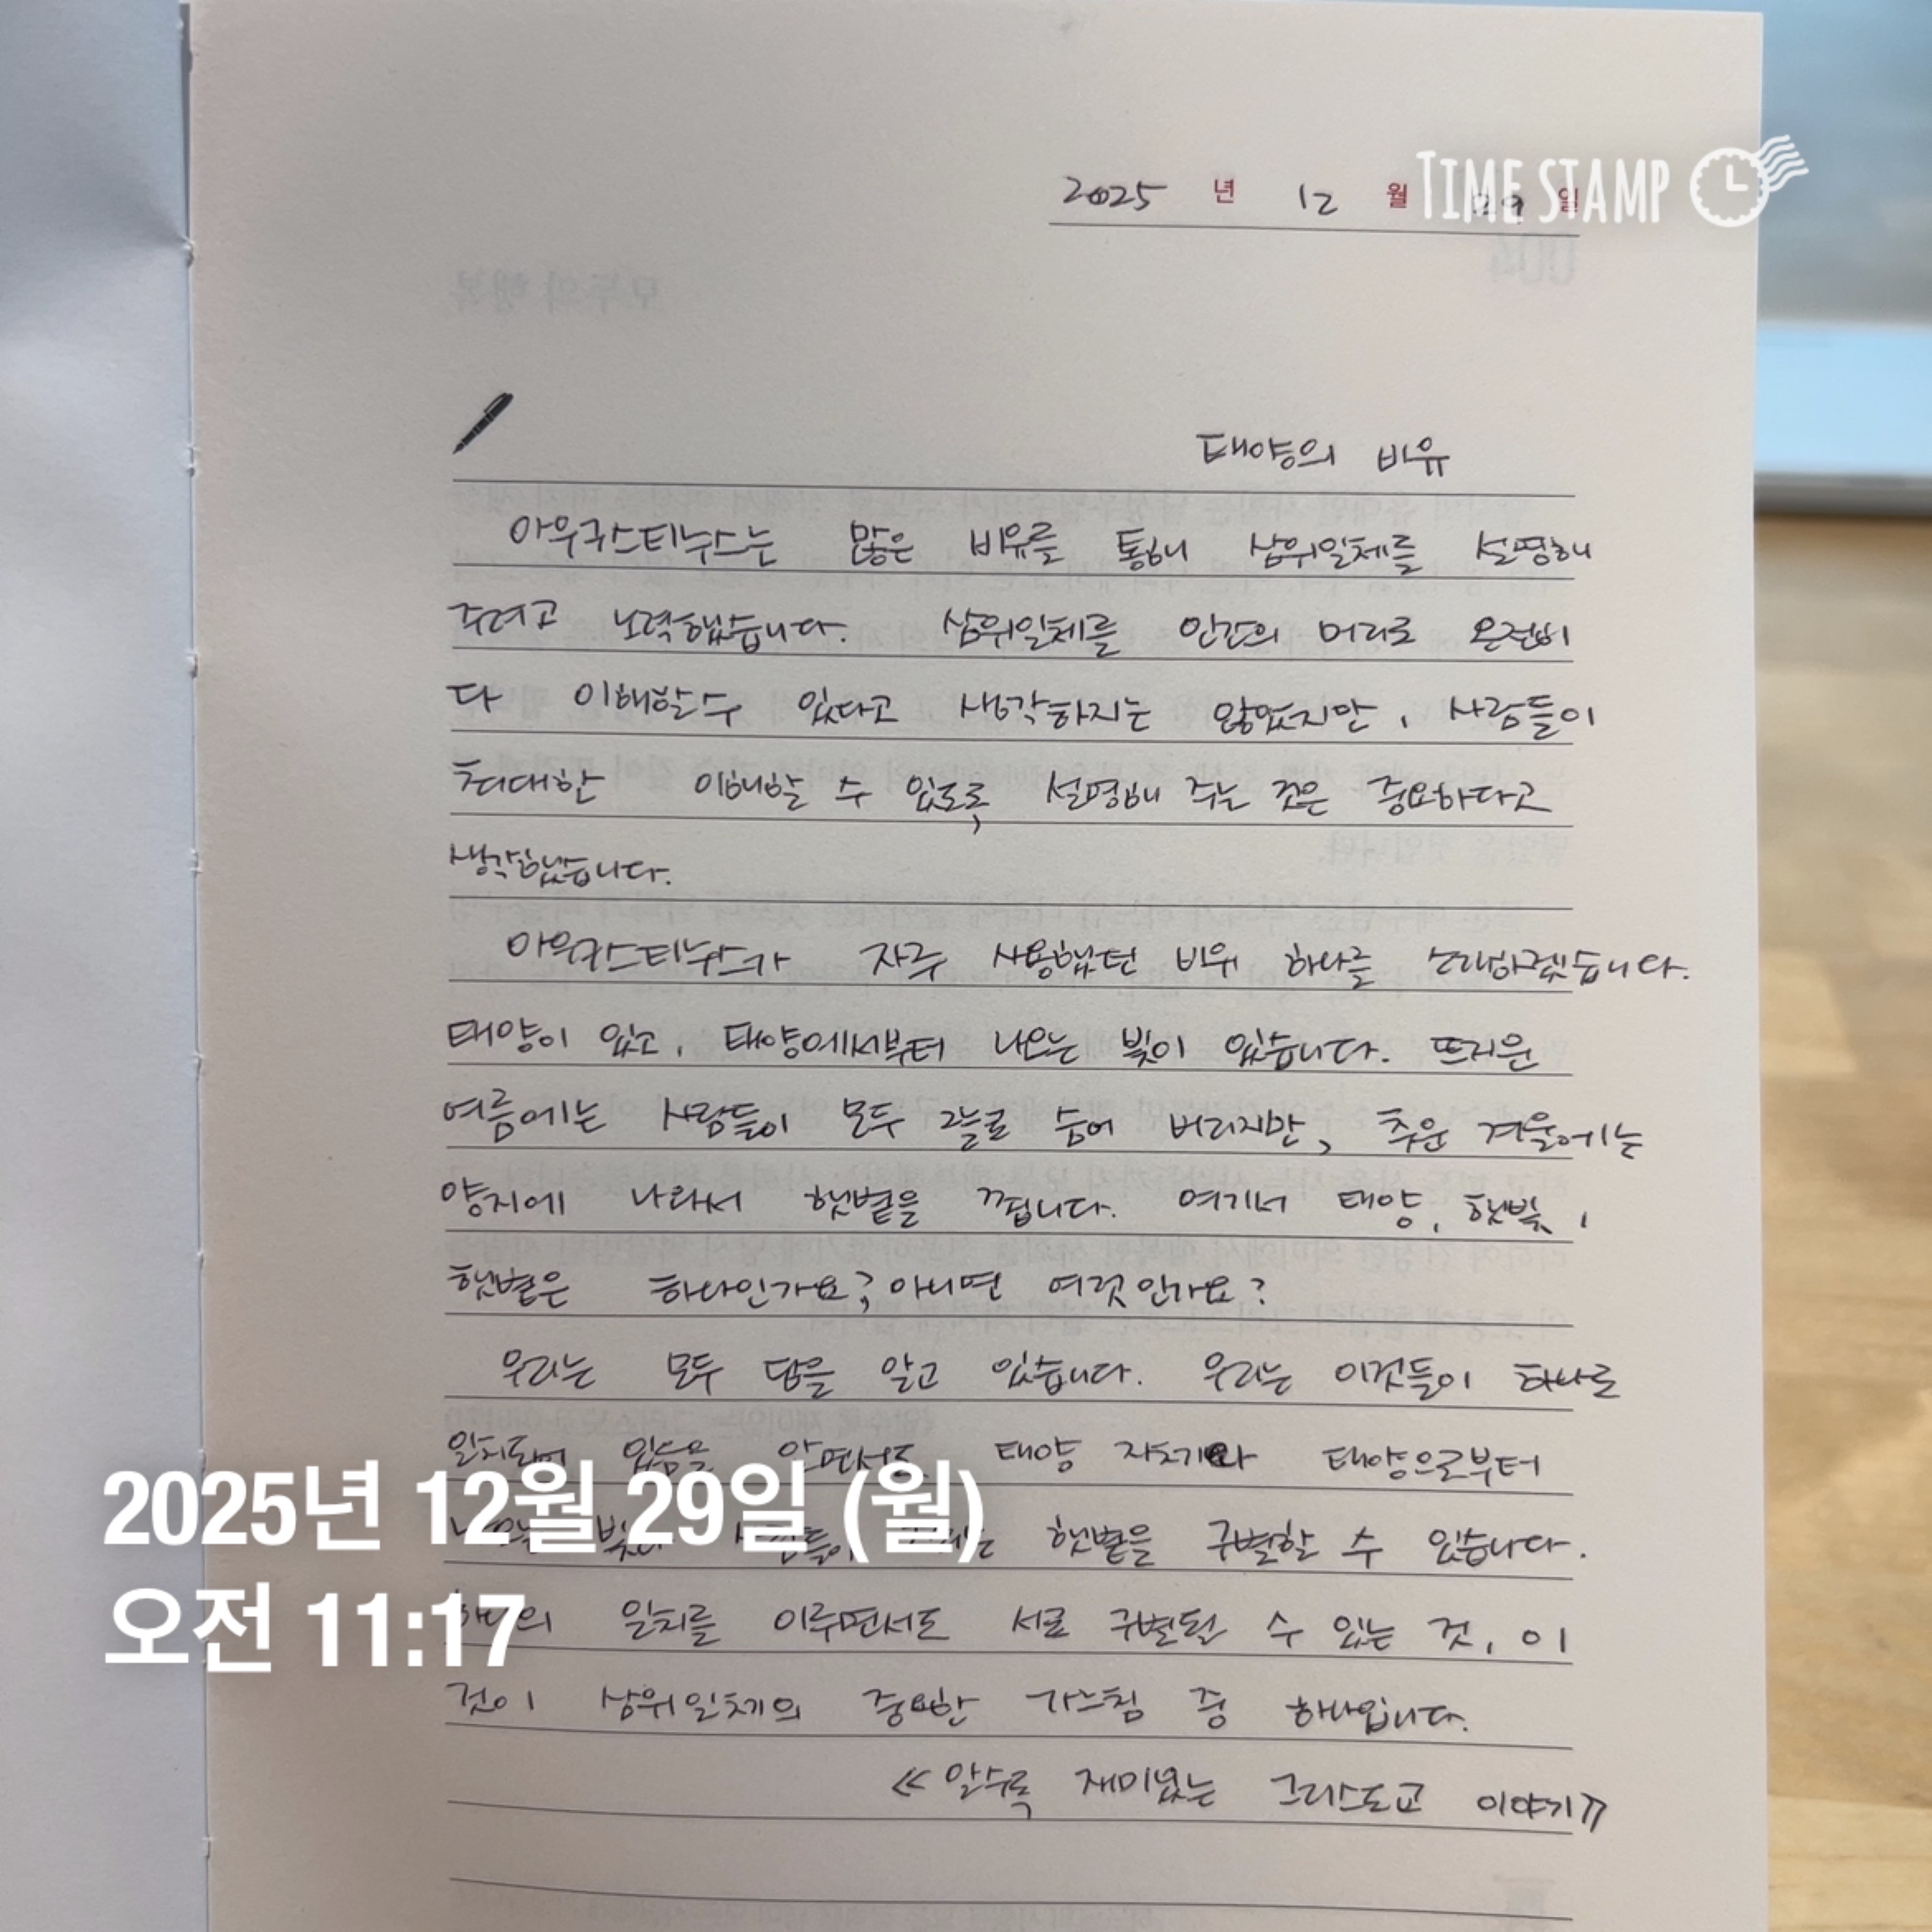 2025 년 12 월 29 일
TIME STAMP
태양의 비유
아우구스티누스는 많은 비유를 통해 삼위일체를 설명해
주려고 노력했습니다. 삼위일체를 인간의 머리로 온전히
다 이해할 수 있다고 생각하지는 않았지만, 사람들이
최대한 이해할 수 있도록, 설명해 주는 것은 중요하다고
생각했습니다.
아우구스티누스가 자주 사용했던 비유 하나를 소개하겠습니다.
태양이 있고, 태양에서부터 나오는 빛이 있습니다. 뜨거운
여름에는 사람들이 모두 그늘로 숨어 버리지만, 추운 겨울에는
양지에 나와서 햇볕을 쬡니다. 여기서 태양, 햇빛,
햇볕은 하나인가요? 아니면 여럿인가요?
우리는 모두 답을 알고 있습니다. 우리는 이것들이 하나로
일치되어 있음을 알면서도 태양 자체와 태양으로부터
나오는 빛과 사람들이 햇볕을 구별할 수 있습니다.
하나의 일치를 이루면서도 서로 구별될 수 있는 것, 이
것이 삼위일체의 중요한 가르침 중 하나입니다.
《알수록 재미있는 그리스도교 이야기》
2025년 12월 29일 (월)
오전 11:17